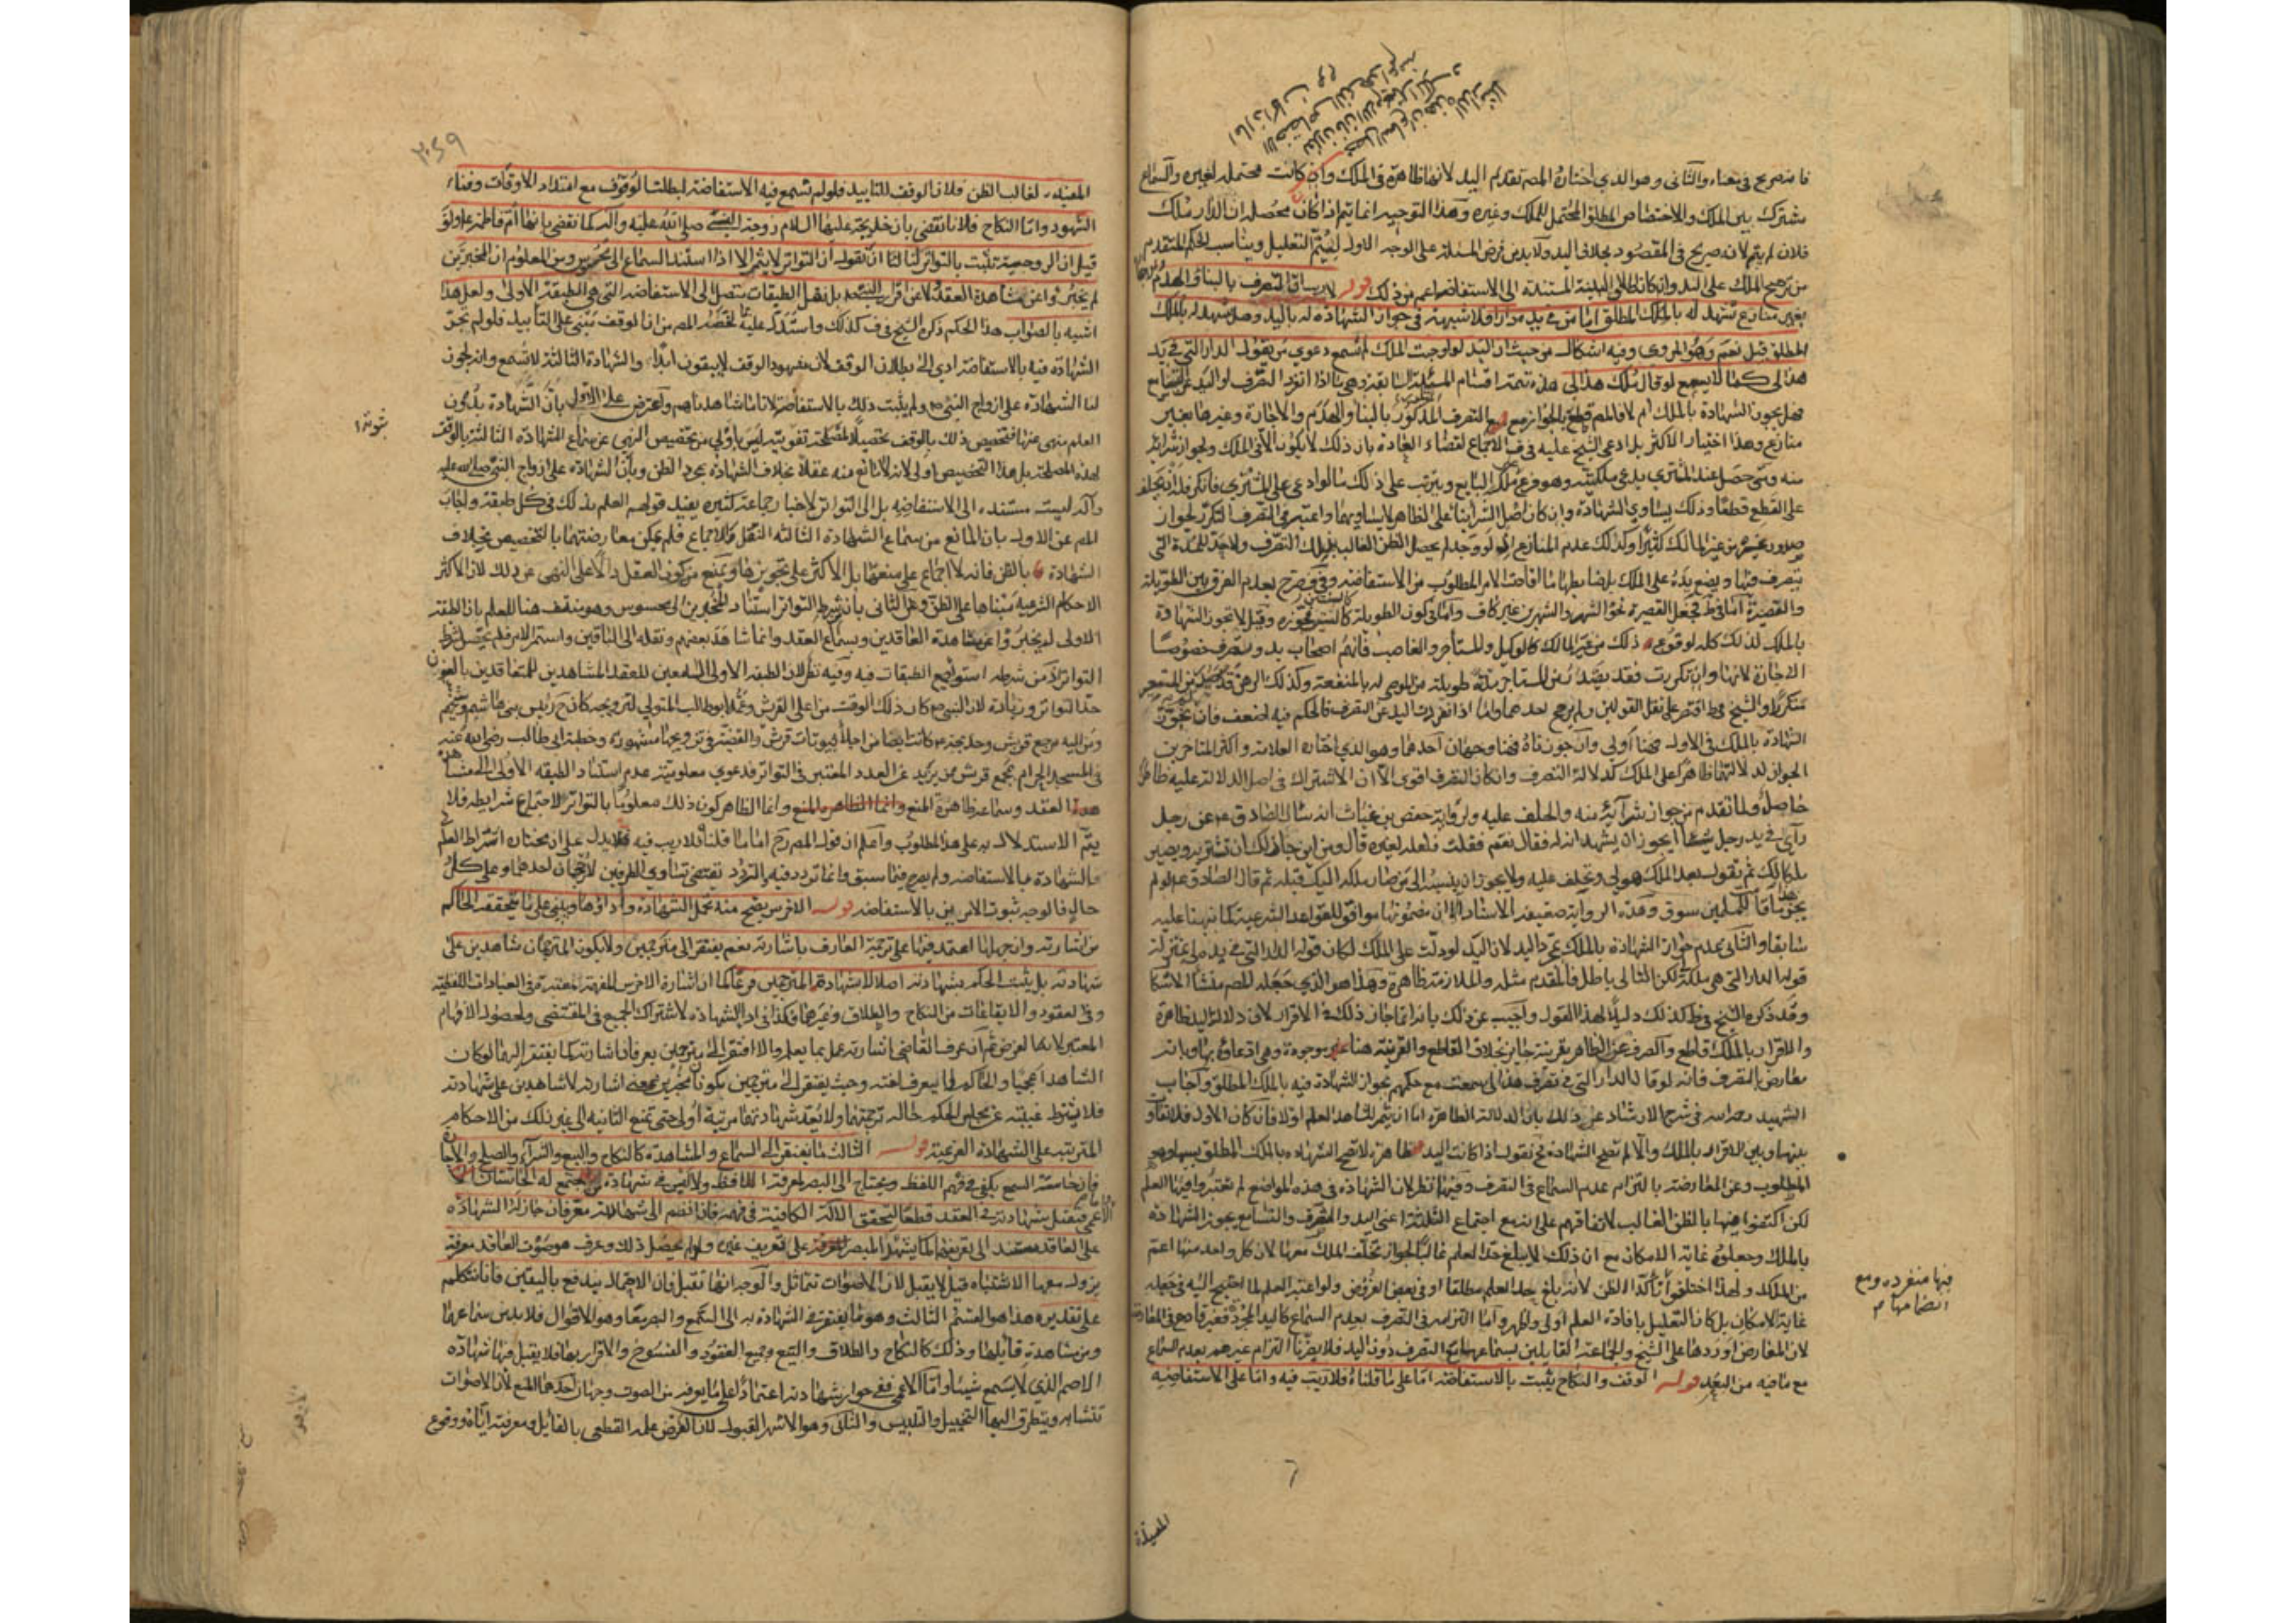 فانه صريح في معناه والثاني وهو الذي اختاره المصه تقديم اليد لانها ظاهرة في الملك وان كانت محتملة لغيره والسماع
مشترك بين الملك والاختصاص المطلق المحتمل للملك وغيره وهذا التوجيه انما يتم اذا كان محصله ان الدار ملك
فلان لم يتم لانه صريح في المقصود بخلاف اليد ولا بد من فرض المسئلة على الوجه الاول ليتم التعليل ويناسب الحكم المتقدم
من ترجيح الملك على اليد وان كانظ الاولى البينة المستندة الى الاستفاضة اعم من ذلك قوله لا ريب ان التصرف بالبناء والهدم
بغير منازع تشهد له بالملك المطلق اما من في يده دار فلا شبهة في جواز الشهادة له باليد وهل يشهد له بالملك
المطلق قيل نعم وهو المروي وفيه اشكال من حيث ان اليد لو اوجبت الملك لم تسمع دعوي من يقول الدار التي في يد
هذا لي كما لا يسمع لو قال ملك هذا لي هذه تتمة اقسام المسئلة السابقة وهي ما اذا انفرد التصرف او اليد عن التسامع
فهل يجوز الشهادة بالملك ام لا فالمصه قطع بالجواز مع التصرف المذكور بالبناء والهدم والاجارة وغيرها بغير
منازع وهذا اختيار الاكثر بل ادعى الشيخ عليه في ف الاجماع لقضاء العادة بان ذلك لا يكون الا في الملك ولجواز شرائه
منه ومتى حصل عند المشتري يدعي ملكيته وهو فرع ملك البايع ويترتب على ذلك ما لو ادعي على المشتري فانكر فله ان يحلف
على القطع قطعا وذلك يساوي الشهادة وان كان اصل الشراء بناء على الظاهر لا يساويها واعتبر في التصرف التكرر لجواز
صدور غيره من غير المالك كثيرا وكذلك عدم المنازع اذ لو وجد لم يحصل الظن الغالب بملك المتصرف ولا حد للمدة التي
يتصرف فيها ويضع يده على الملك بل ضابطها ما افادت الامر المطلوب من الاستفاضة وفي ف صرح بعدم الفرق بين الطويلة
والقصيرة اما في ط فجعل القصيرة نحو الشهر والشهرين غير كاف واما كون الطويلة كالسنين فجوزه وقيل لا تجوز الشهادة
بالملك لذلك كله لوقوع ذلك من غير المالك كالوكيل والمستاجر والغاصب فانهم اصحاب يد وتصرف خصوصا
الاجارة لانها وان تكررت فقد يصدر من المستاجر مدة طويلة من الموصى له بالمنفعة وكذلك الرهن قد
متكررا والشيخ في ط اقتصر على نقل القولين ولم يرجح احدهما واما اذا انفردت اليد عن التصرف فالحكم فيه اضعف فان
الشهادة بالملك في الاول فهنا اولى وان جوزناه فهنا وجهان احدهما وهو الذي اختاره العلامة واكثر المتاخرين
الجواز لدلالتها ظاهرا على الملك كدلالة التصرف وان كان التصرف اقوى الا ان الاشتراك في اصل الدلالة عليه ظاهرا
حاصل ولما تقدم من جواز شرائه منه والحلف عليه ولرواية حفص بن غياث انه سال الصادق عن رجل
رأى في يد رجل شيئا ايجوز ان يشهد انه له فقال نعم فقلت فلعله لغيره قال ومن اين جاز لك ان تشتريه ويصير
ملكا لك ثم تقول بعد الملك هو لي وتحلف عليه ولا يجوز ان تنسبه الى من صار ملكه اليك قبله ثم قال الصادق ع لو لم
يجز هذا ما قامت للمسلمين سوق وهذه الرواية ضعيفة الاسناد الا ان مضمونها موافق للقواعد الشرعية كما نبهنا عليه
سابقا والثاني عدم جواز الشهادة بالملك بمجرد اليد لان اليد لو دلت على الملك لكان قوله الدار التي في يد هذا لي بمنزلة
قوله الدار التي هي ملكه لكن التالي باطل فالمقدم مثله والملازمة ظاهرة وهذا هو الذي جعله المصه منشأ الاشكال
وقد ذكره الشيخ في ط كذلك دليلا لهذا القول واجيب عن ذلك بانه انما جاز ذلك في الاقرار لان دلالة اليد ظاهرة
والاقرار بالملك قاطع والصرف عن الظاهر بقرينة جايز بخلاف القاطع والقرينة هنا موجودة وهي ادعاؤه بها وبانه
معارض بالتصرف فانه لو قال الدار التي في تصرف هذا لي سمعت مع حكمهم بجواز الشهادة فيه بالملك المطلق واجاب
الشهيد رحمه الله في شرح الارشاد عن ذلك بان الدلالة الظاهرة اما ان تثمر للشاهد العلم اولا فان كان الاول فلا تفاوت
بينها وبين الاقرار بالملك والا لم تصح الشهادة فح نقول اذا كانت اليد ظاهرة لا تصح الشهادة بالملك المطلق بسببها وهو
المطلوب وعن المعارضة بالتزام عدم السماع في التصرف وفيهما نظر لان الشهادة في هذه المواضع لم يعتبروا فيها العلم
لكن اكتفوا فيها بالظن الغالب لاتفاقهم على ان مع اجتماع الثلثة اعني اليد والتصرف والتسامع يجوز الشهادة
بالملك وجعلوه غاية الامكان مع ان ذلك لا يبلغ حد العلم غالبا لجواز تخلف الملك معها لان كل واحد منها اعم
من الملك ولهذا اختلفوا في تأكد الظن لانه بلغ حد العلم مطلقا او في بعض الفروض ولو اعتبر العلم لما احتيج اليه في جعله
غاية الامكان بل كان التعليل بافادة العلم اولى واظهر واما التزامه في التصرف بعدم السماع كاليد المجردة فغير قادح في المعارضة
لان المعارض اوردها على الشيخ والجماعة القايلين بسماعها مع التصرف دون اليد فلا يضرنا التزام غيرهم بعدم السماع
مع ما فيه من البعد قوله الوقف والنكاح يثبت بالاستفاضة اما على ما قلناه فلا ريب فيه واما على الاستفاضة
المفيدة
فيها منفردة ومع
انضمامها م
٢٥٩
المفيدة لغالب الظن فلان الوقف للتابيد فلو لم تسمع فيه الاستفاضة لبطلت الوقوف مع امتداد الاوقات وفناء
الشهود واما النكاح فلانا نقضي بان خديجة عليها السلام زوجة النبي صلى الله عليه وآله كما نقضي بانها ام فاطمة ع ولو
قيل ان الزوجية تثبت بالتواتر كان لنا ان نقول ان التواتر لا يثمر الا اذا استند السماع الى محسوس ومن المعلوم ان المخبرين
لم يخبروا عن مشاهدة العقد ولا عن اقرار النبي ص بل نقل الطبقات متصل الى الاستفاضة التي هي الطبقة الاولى ولعل هذا
اشبه بالصواب هذا الحكم ذكره الشيخ في ف كذلك واستدل عليه بما لخصه المصه من ان الوقف مبني على التأبيد فلو لم تجز
الشهادة فيه بالاستفاضة ادى الى بطلان الوقف لان شهود الوقف لا يبقون ابدا والشهادة الثالثة لا تسمع وانه يجوز
لنا الشهادة على ازواج النبي ص ولم يثبت ذلك بالاستفاضة لانا ما شاهدناهم واعترض على الاول بان الشهادة بدون
العلم منهى عنها فتخصيص ذلك بالوقف تحصيلا لمصلحة ثبوته ليس باولى من تخصيص النهي عن سماع الشهادة الثالثة بالوقف
لهذه المصلحة بل هذا التخصيص اولى لانه لا مانع منه عقلا بخلاف الشهادة بمجرد الظن وبان الشهادة على ازواج النبي صلى الله عليه
وآله ليست مستندة الى الاستفاضة بل الى التواتر لاخبار جماعة كثيرة يفيد قولهم العلم بذلك في كل طبقة واجاب
المصه عن الاول بان المانع من سماع الشهادة الثالثة النقل والاجماع فلم يمكن معارضتهما بالتخصيص بخلاف
الشهادة بالظن فانه لا اجماع على منعها بل الاكثر على تجويزها ويمنع من كون العقل دالا على النهي عن ذلك لان الاكثر
الاحكام الشرعية مبناها على الظن وعن الثاني بان شرط التواتر استناد المخبرين الى محسوس وهو منتف هنا للعلم بان الطبقة
الاولى لم يخبروا عن مشاهدة العاقدين وسماع العقد وانما شاهد بعضهم ونقله الى الباقين واستمر الامر فلم يحصل شرط
التواتر اذ من شرطه استواء جميع الطبقات فيه وفيه نظر لان الطبقة الاولى السامعين للعقد المشاهدين للمتعاقدين بالغون
حد التواتر وزيادة لان النبي ص كان ذلك الوقت من اعلى القرش وعمه ابو طالب المتولي لتزويجه كان ح رئيس بني هاشم وشيخهم
ومن اليه مرجع قريش وخديجة ع كانت ايضا من اجلاء بيوتات قريش والقصة في تزويجها مشهورة وخطبة ابي طالب رضي الله عنه
في المسجد الحرام بمجمع قريش ممن يزيد عن العدد المعتبر في التواتر فدعوى معلومية عدم استناد الطبقة الاولى الى مشاهدة
العقد وسماعه ظاهرة المنع وانما الظاهر كون ذلك معلوما بالتواتر لاجتماع شرايطه فلا
يتم الاستدلال به على هذا المطلوب واعلم ان قول المصه رح اما على ما قلناه فلا ريب فيه يدل على ان مختاره اشتراط العلم
بالشهادة بالاستفاضة ولم يصرح فيما سبق وانما تردد فيه والتردد يقتضي تساوي الطرفين لا رجحان احدهما وعلى كل
حال فالوجه ثبوت الامرين بالاستفاضة قوله الاخرس يصح منه تحمل الشهادة وأداؤها ويبني على ما يتحققه الحاكم
من اشارته وان جهلها اعتمد فيها على ترجمة العارف باشارته نعم يفتقر الى مترجمين ولا يكون المترجمان شاهدين على
شهادته بل يثبت الحكم بشهادته اصلا لا بشهادة المترجمين فرعا لما كان اشارة الاخرس المفهمة معتبرة في العبادات اللفظية
وفي العقود والايقاعات من النكاح والطلاق وغيرها فكذا في اداء الشهادة لاشتراك الجميع في المقتضي ولحصول الافهام
المعتبر لاداء الغرض ثم ان عرف القاضي اشارته عمل بما يعلم والا افتقر الى مترجمين يعرفان اشارته كما يفتقر اليهما لو كان
الشاهد اعجميا والحاكم لا يعرف لغته وحيث يفتقر الى مترجمين يكونان مخبرين بمعنى اشارته لا شاهدين على شهادته
فلا يشترط غيبته عن مجلس الحكم حالة ترجمتهما ولا تعد شهادتهما مرتبة اولى حتى تمنع الثانية الى غير ذلك من الاحكام
المترتبة على الشهادة الفرعية قوله الثالث ما يفتقر الى السماع والمشاهدة كالنكاح والبيع والشراء والصلح والاجارة
فان حاسة السمع يكفي في فهم اللفظ ويحتاج الى البصر لمعرفة اللافظ ولا لبس في شهادة من اجتمع له الحاستان اما
الاعمى فتقبل شهادته في العقد قطعا لتحقق الالة الكافية في فهمه فان انضم الى شهادته معرفان جاز له الشهادة
على العاقد مستندا الى تعريفهما كما يشهد المبصر على تعريف غيره ولو لم يحصل ذلك وعرف هو صوت العاقد معرفة
يزول معها الاشتباه قيل لا يقبل لان الاصوات تتماثل والوجه انها تقبل فان الاحتمال يندفع باليقين فانا نتكلم
على تقديره هذا هو القسم الثالث وهو ما يفتقر في الشهادة به الى السمع والبصر معا وهو الاقوال فلا بد من سماعها
ومن مشاهدة قايلها وذلك كالنكاح والطلاق والبيع وجميع العقود والفسوخ والاقرار بها فلا يقبل فيها شهادة
الاصم الذي لا يسمع شيئا واما الاعمى ففي جواز شهادته اعتمادا على ما يعرفه من الصوت وجهان احدهما المنع لان الاصوات
تتشابه ويتطرق اليها التخييل والتلبيس والثاني وهو الاشهر القبول لان الفرض علمه القطعي بالقايل ومعرفته اياه ووقوع